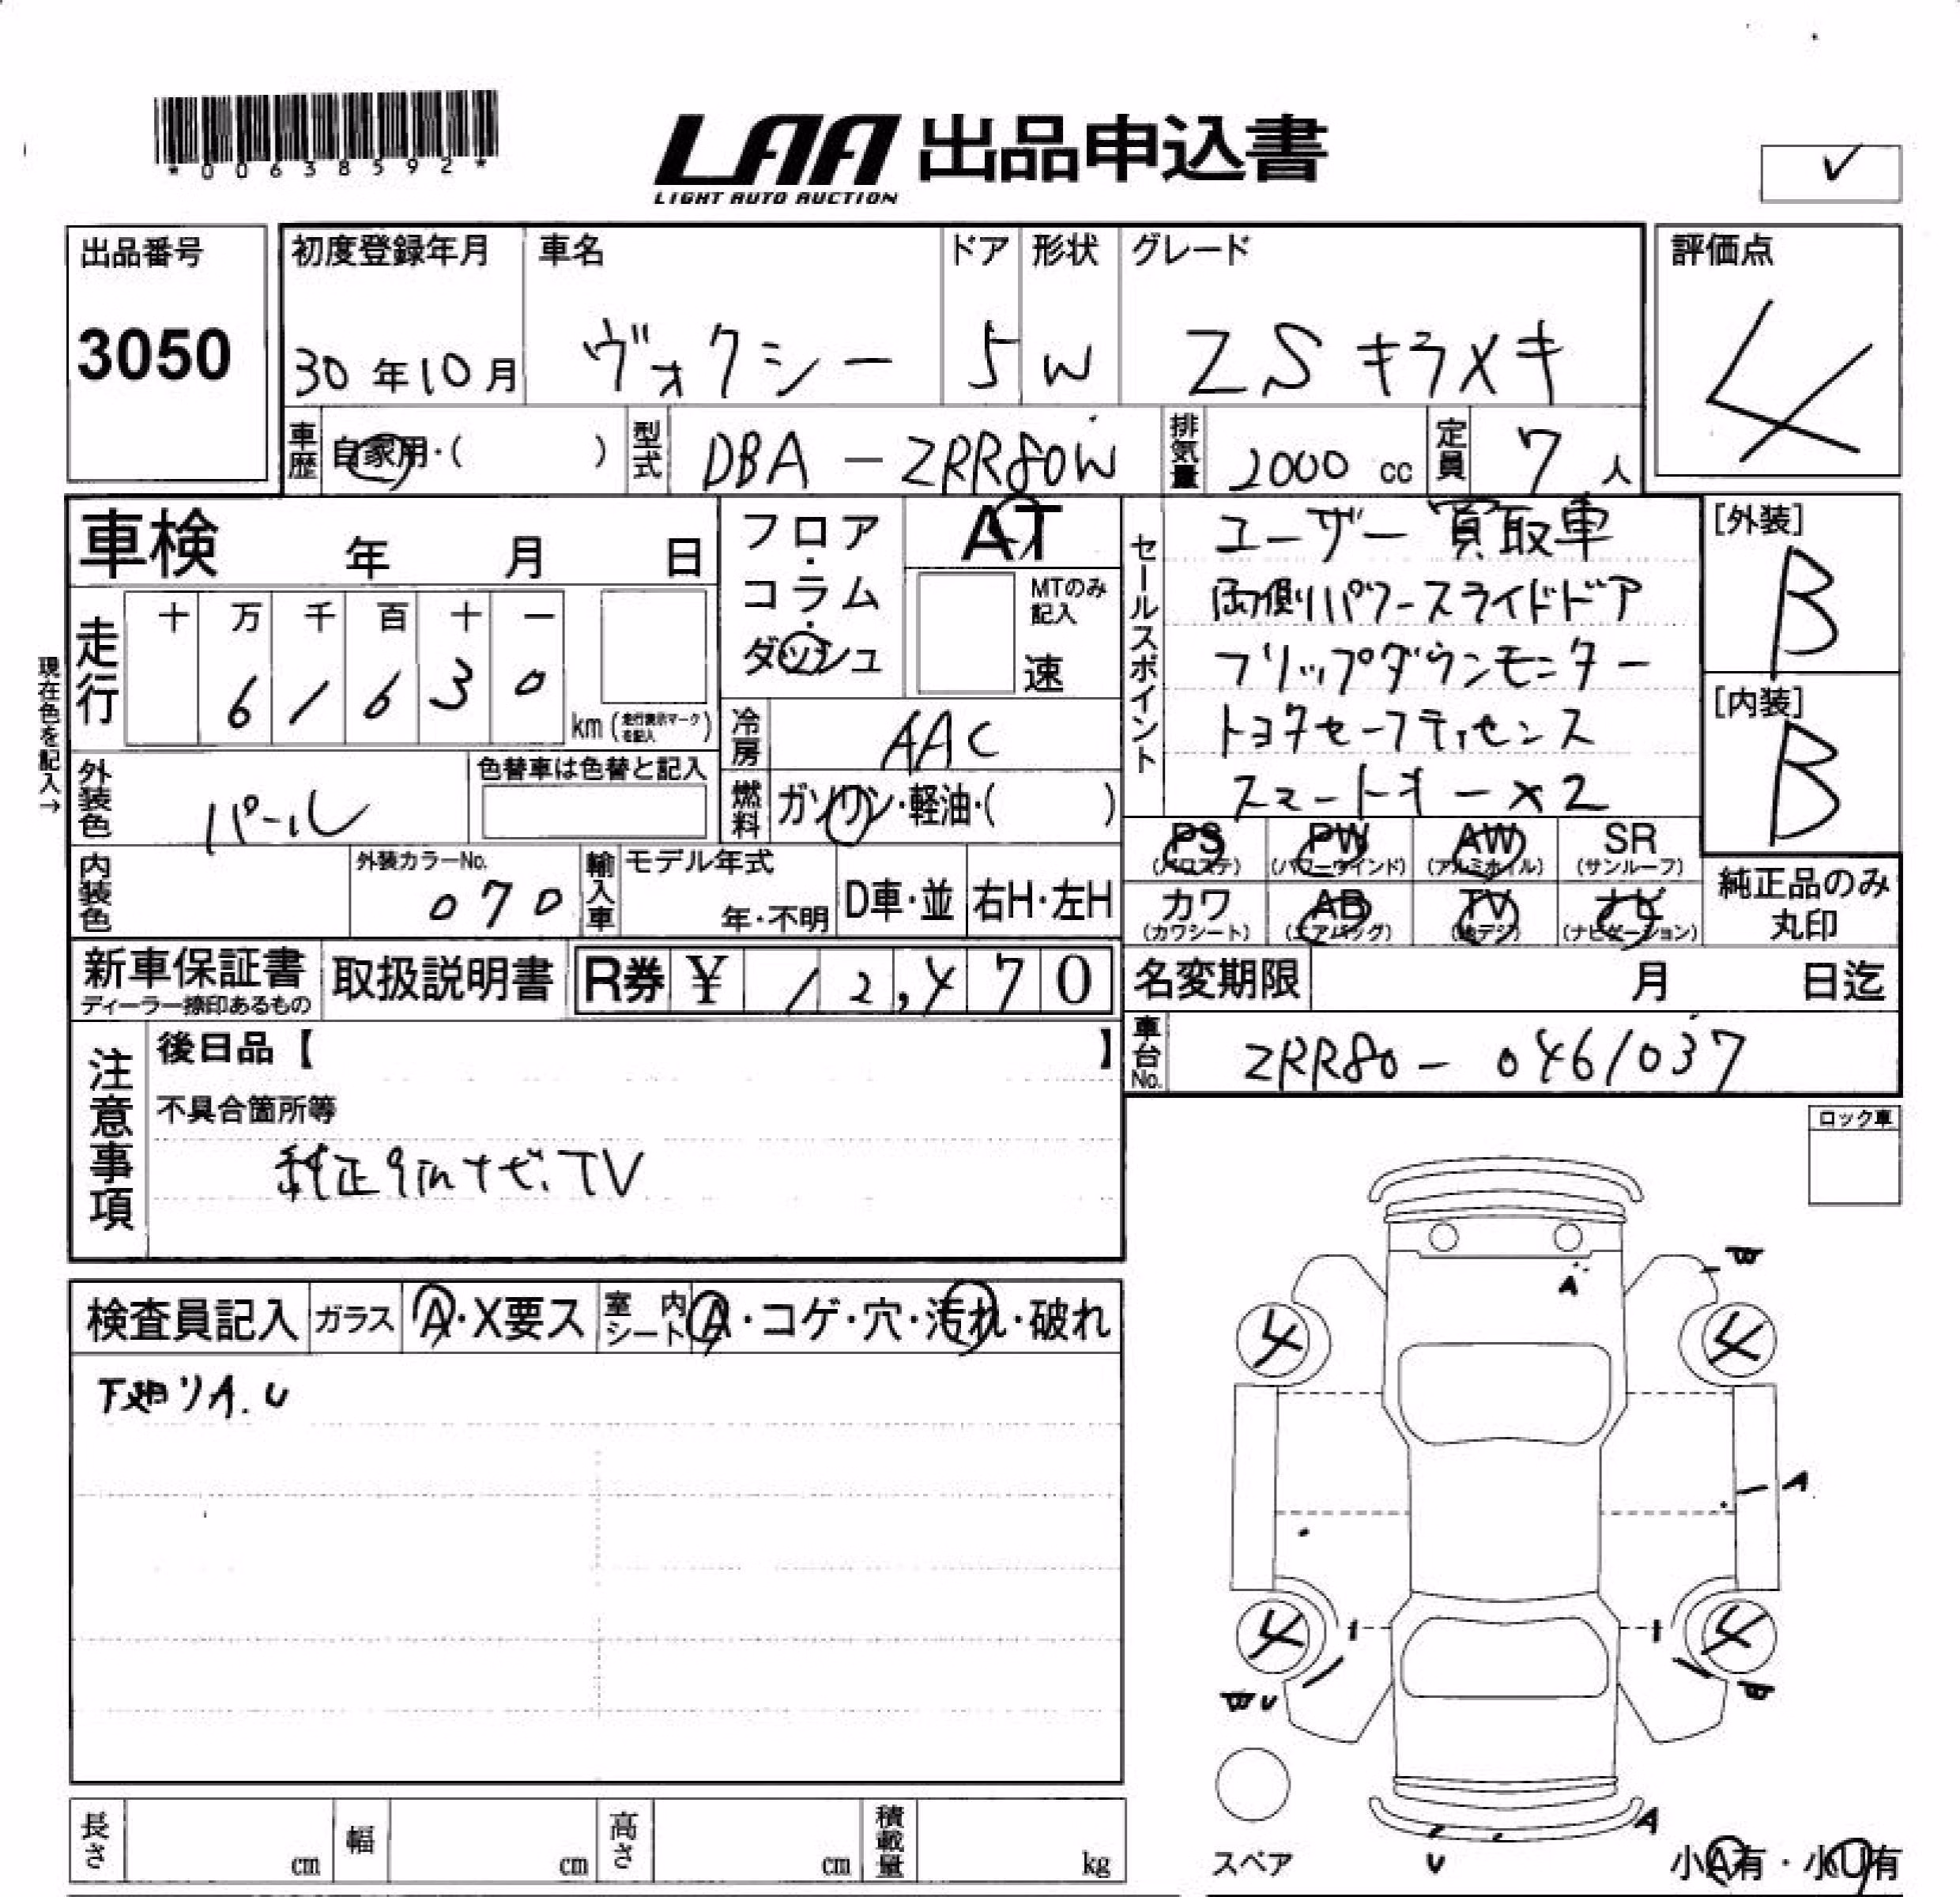 *00638592*
LAA 出品申込書
LIGHT AUTO AUCTION
✓
出品番号
3050
初度登録年月 車名 ドア 形状 グレード
30年10月 ヴォクシー 5 W ZSキラメキ
評価点
4
車歴 自家用・( ) 型式 DBA-ZRR80W 排気量 2000 cc 定員 7 人
車検 年 月 日
フロア・コラム・ダッシュ
AT
MTのみ記入
速
セールスポイント
ユーザー買取車
両側パワースライドドア
フリップダウンモニター
トヨタセーフティセンス
スマートキー×2
[外装]
B
[内装]
B
現在色を記入→
走行 十 万 千 百 十 一
6 1 6 3 0
km (走行表示マークを記入)
冷房 AAC
外装色 パール
色替車は色替と記入
燃料 ガソリン・軽油・( )
PS (パワステ) PW (パワーウインド) AW (アルミホイル) SR (サンルーフ)
カワ (カワシート) AB (エアバッグ) TV (地デジ) ナビ (ナビゲーション)
純正品のみ丸印
内装色
外装カラーNo.
070
輸入車 モデル年式
年・不明 D車・並 右H・左H
新車保証書
ディーラー捺印あるもの
取扱説明書
R券 ¥ 12,470
名変期限 月 日迄
車台No. ZRR80-0461037
注意事項
後日品【 】
不具合箇所等
純正9inナビ.TV
ロック車
検査員記入 ガラス A・X要ス 室内シート A・コゲ・穴・汚れ・破れ
下廻りA.U
A
4 4
A
4 4
U
A
スペア
U
小A有・小U有
長さ cm 幅 cm 高さ cm 積載量 kg